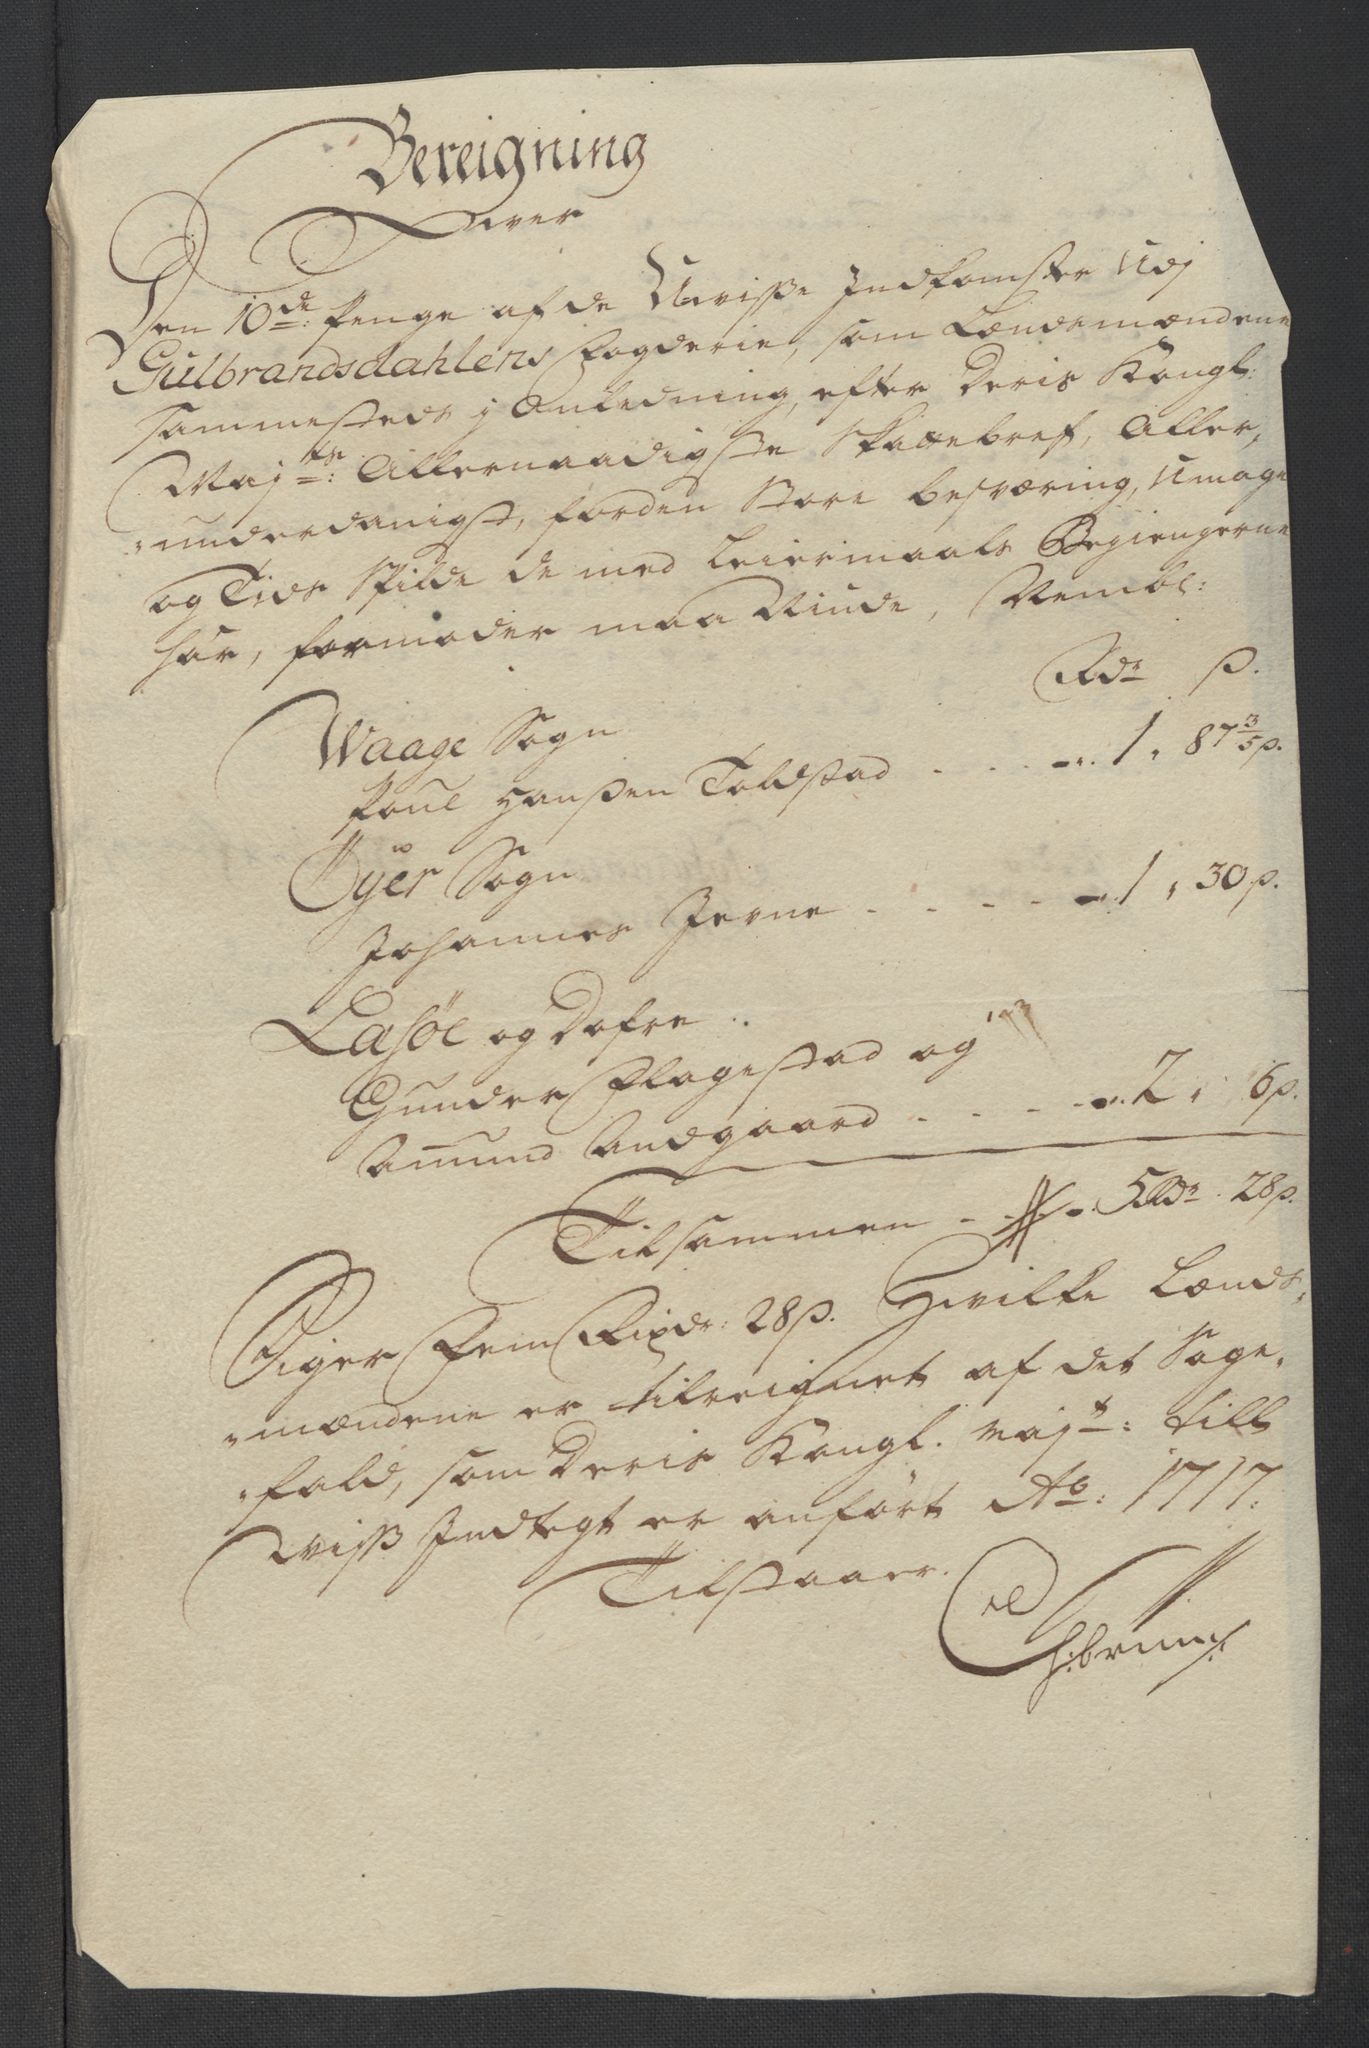 Bereigning
Over
Den 10de: Penge af de Uvisse Indkomster Udj
Gulbrandsdahlens Fogderie, som Lændsmændene
sammesteds j Anledning, efter Deris Kongl:
Majts: Allernaadigste Skattebref, Aller,
,,underdanigst, forden Store besværing, Umage
og Tids Spilde de med Leiermaals Begiengerne
har, formoder maa Niude, Nembl:
Rdr ß.
Waage Sogn
Poul Hanßen Toldstad - - - - 1, 87 3/5 ß.
Öyer Sogn
Johannes Jevne - - - - - 1, 30 ß.
Lasöe og Dofre
Gunder Flagestad og
Amund Andgaard - - - - - 2, 6 ß.
Tilsammen - - - 5 Rdr 28 ß.
Siger Fem Rixdr: 28 ß. Hvilke Lænds,
,,mændene er tilreignet af det Sage,
,,fald, som Deris Kongl. Majt: till
Uviss Indtegt er anført Ao: 1717.
Tilstaaer.